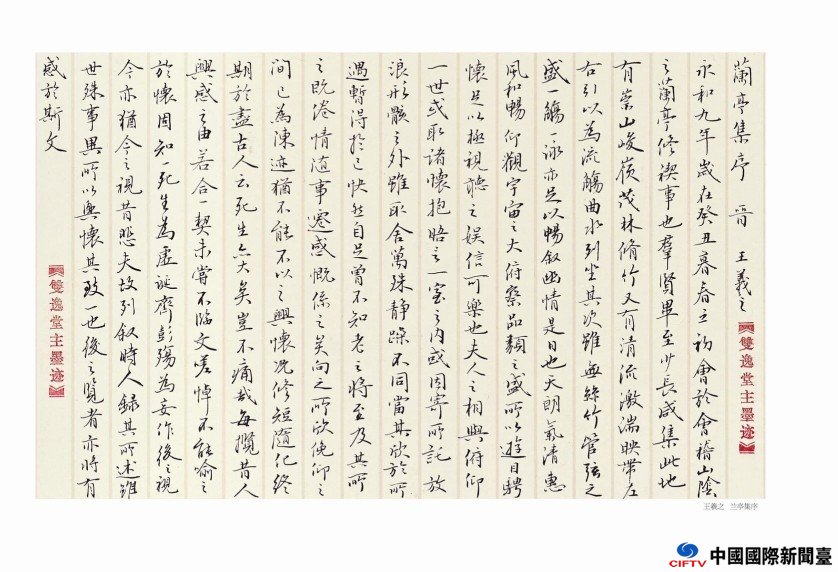 蘭亭集序 晉 王羲之
雙逸堂主墨迹
永和九年歲在癸丑暮春之初會於會稽山陰
之蘭亭修禊事也羣賢畢至少長咸集此地
有崇山峻嶺茂林脩竹又有清流激湍映帶左
右引以為流觴曲水列坐其次雖無絲竹管弦之
盛一觴一詠亦足以暢叙幽情是日也天朗氣清惠
風和暢仰觀宇宙之大俯察品類之盛所以遊目騁
懷足以極視聽之娛信可樂也夫人之相與俯仰
一世或取諸懷抱晤言一室之內或因寄所託放
浪形骸之外雖取舍萬殊靜躁不同當其欣於所
遇暫得於己快然自足曾不知老之將至及其所
之既倦情隨事遷感慨係之矣向之所欣俛仰之
間已為陳迹猶不能不以之興懷況修短隨化終
期於盡古人云死生亦大矣豈不痛哉每攬昔人
興感之由若合一契未嘗不臨文嗟悼不能喻之
於懷固知一死生為虛誕齊彭殤為妄作後之視
今亦猶今之視昔悲夫故列叙時人錄其所述雖
世殊事異所以興懷其致一也後之覽者亦將有
感於斯文
雙逸堂主墨迹
王羲之 兰亭集序
CIFTV 中國國際新聞臺